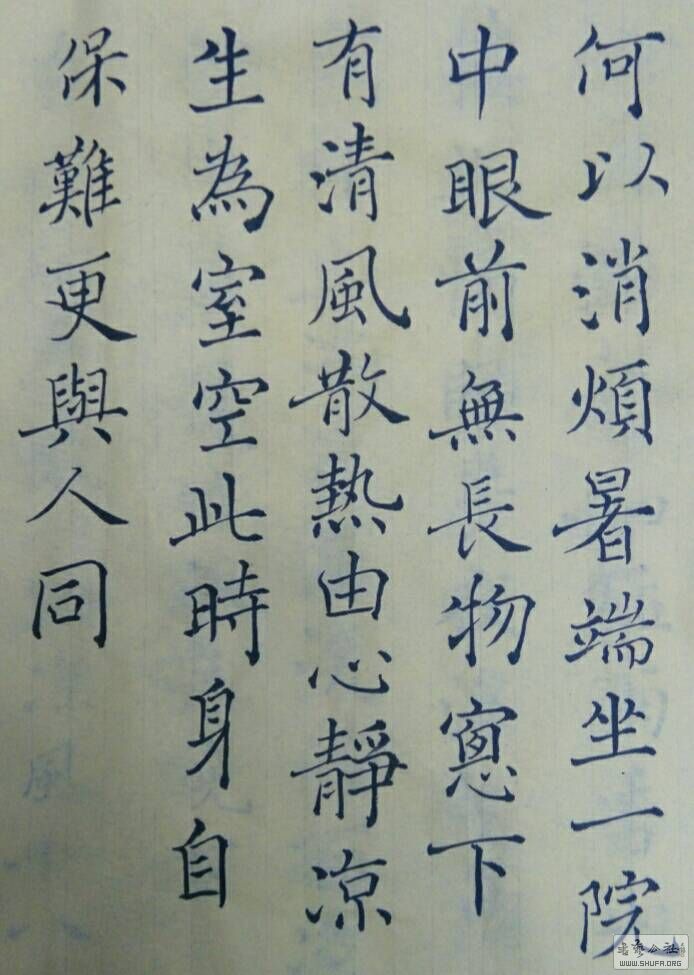 何以消煩暑端坐一院
中眼前無長物窻下
有清風散熱由心靜凉
生為室空此時身自
保難更與人同
WWW.SHUFA.ORG